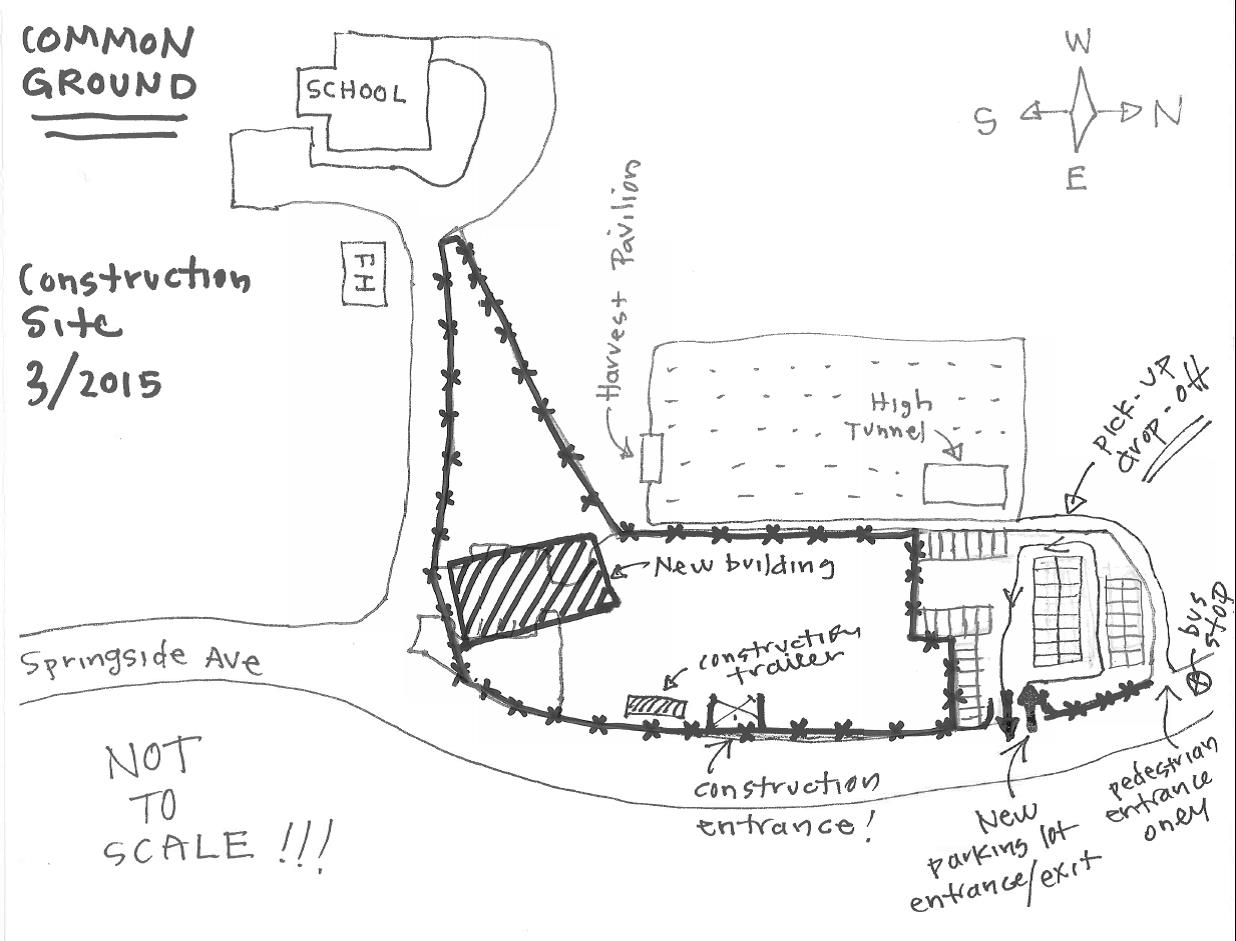 COMMON
GROUND
SCHOOL
W
S
N
E
Construction
Site
3/2015
FH
Harvest Pavilion
High
Tunnel
pick-up
drop-off
New building
construction
trailer
bus
stop
Springside Ave
construction
entrance!
New
parking lot
entrance/exit
pedestrian
entrance
only
NOT
TO
SCALE!!!